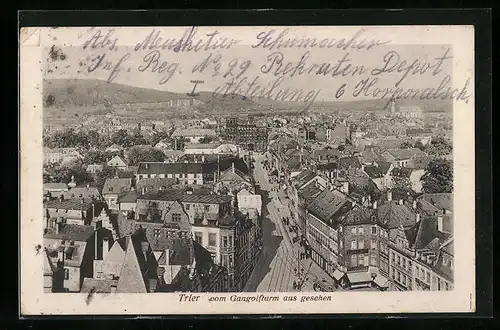 Abs. Musketier Schumacher
Inf. Reg. No 29 Rekruten Depot
1 Abteilung 6 Korporalsch.
Trier vom Gangolfturm aus gesehen